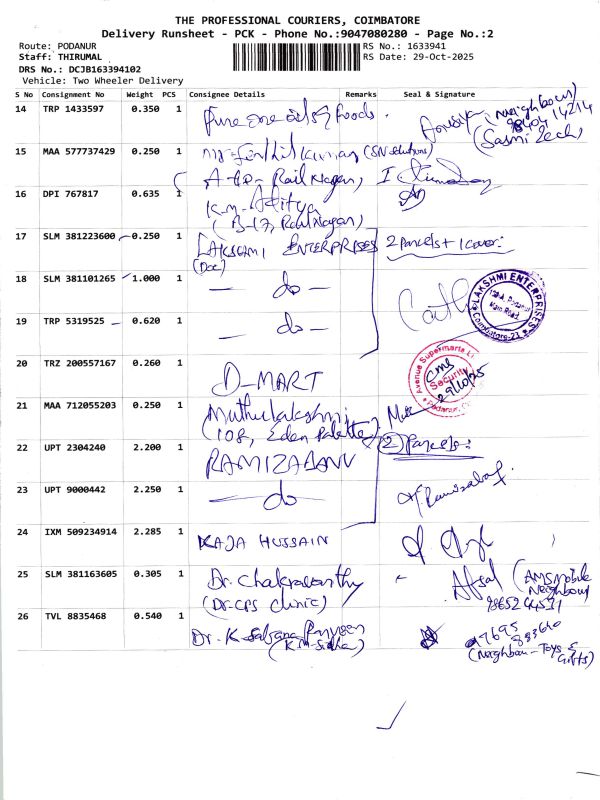 THE PROFESSIONAL COURIERS, COIMBATORE
Delivery Runsheet - PCK - Phone No.:9047080280 - Page No.:2
Route: PODANUR RS No.: 1633941
Staff: THIRUMAL RS Date: 29-Oct-2025
DRS No.: DCJB163394102
Vehicle: Two Wheeler Delivery
S No Consignment No Weight PCS Consignee Details Remarks Seal & Signature
14 TRP 1433597 0.350 1 Foods. (Neighbour)
15 MAA 577737429 0.250 1 (SN Solutions)
16 DPI 767817 0.635 1 K.M. Aditya
17 SLM 381223600 0.250 1 LAKSHMI ENTERPRISES 2 Parcels + 1 Cover:
(Doc)
18 SLM 381101265 1.000 1 — do — LAKSHMI ENTERPRISES
Main Road
Coimbatore-21
19 TRP 5319525 0.620 1 — do —
20 TRZ 200557167 0.260 1 D-MART Avenue Supermarts
Security
29/10/25
Podanur
21 MAA 712055203 0.250 1 Muthulakshmi
(108, Eden Palette)
22 UPT 2304240 2.200 1 RAMIZABANU (2) Parcels:
23 UPT 9000442 2.250 1 — do —
24 IXM 509234914 2.285 1 KAJA HUSSAIN
25 SLM 381163605 0.305 1 Dr. Chakravarthy Afsal (AMS Mobile
(Dr. CPS Clinic) Neighbour)
26 TVL 8835468 0.540 1 Dr. K.
(Neighbour - Toys & Gifts)